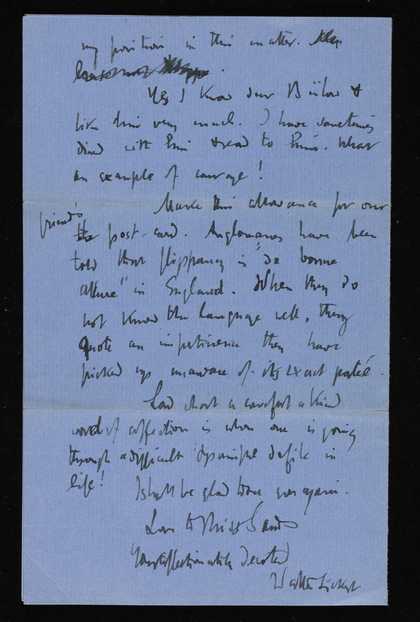 my position in this matter.
Yes I know dear Bülow &
like him very much. I have sometimes
dined with him & read to him. What
an example of courage!
Make this allowance for our
friend's
post-card. Anglomanes have been
told that flippancy is "de bonne
allure" in England. When they do
not know the language well, they
quote an impertinence they have
picked up unaware of its exact portée.
Lord what a comfort a kind
word of affection is when one is going
through a difficult & in
life! I shall be glad to see you again.
Love to Miss Sands
Your affectionately devoted
Walter Sickert